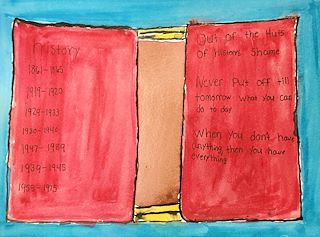 History
1861-1865
1919-1920
1929-1933
1930-1940
1947-1989
1939-1945
1955-1975
Out of the Huts
of History's Shame
Never Put off till
tomorrow what you can
do to day
When you dont have
anything, then you have
everything